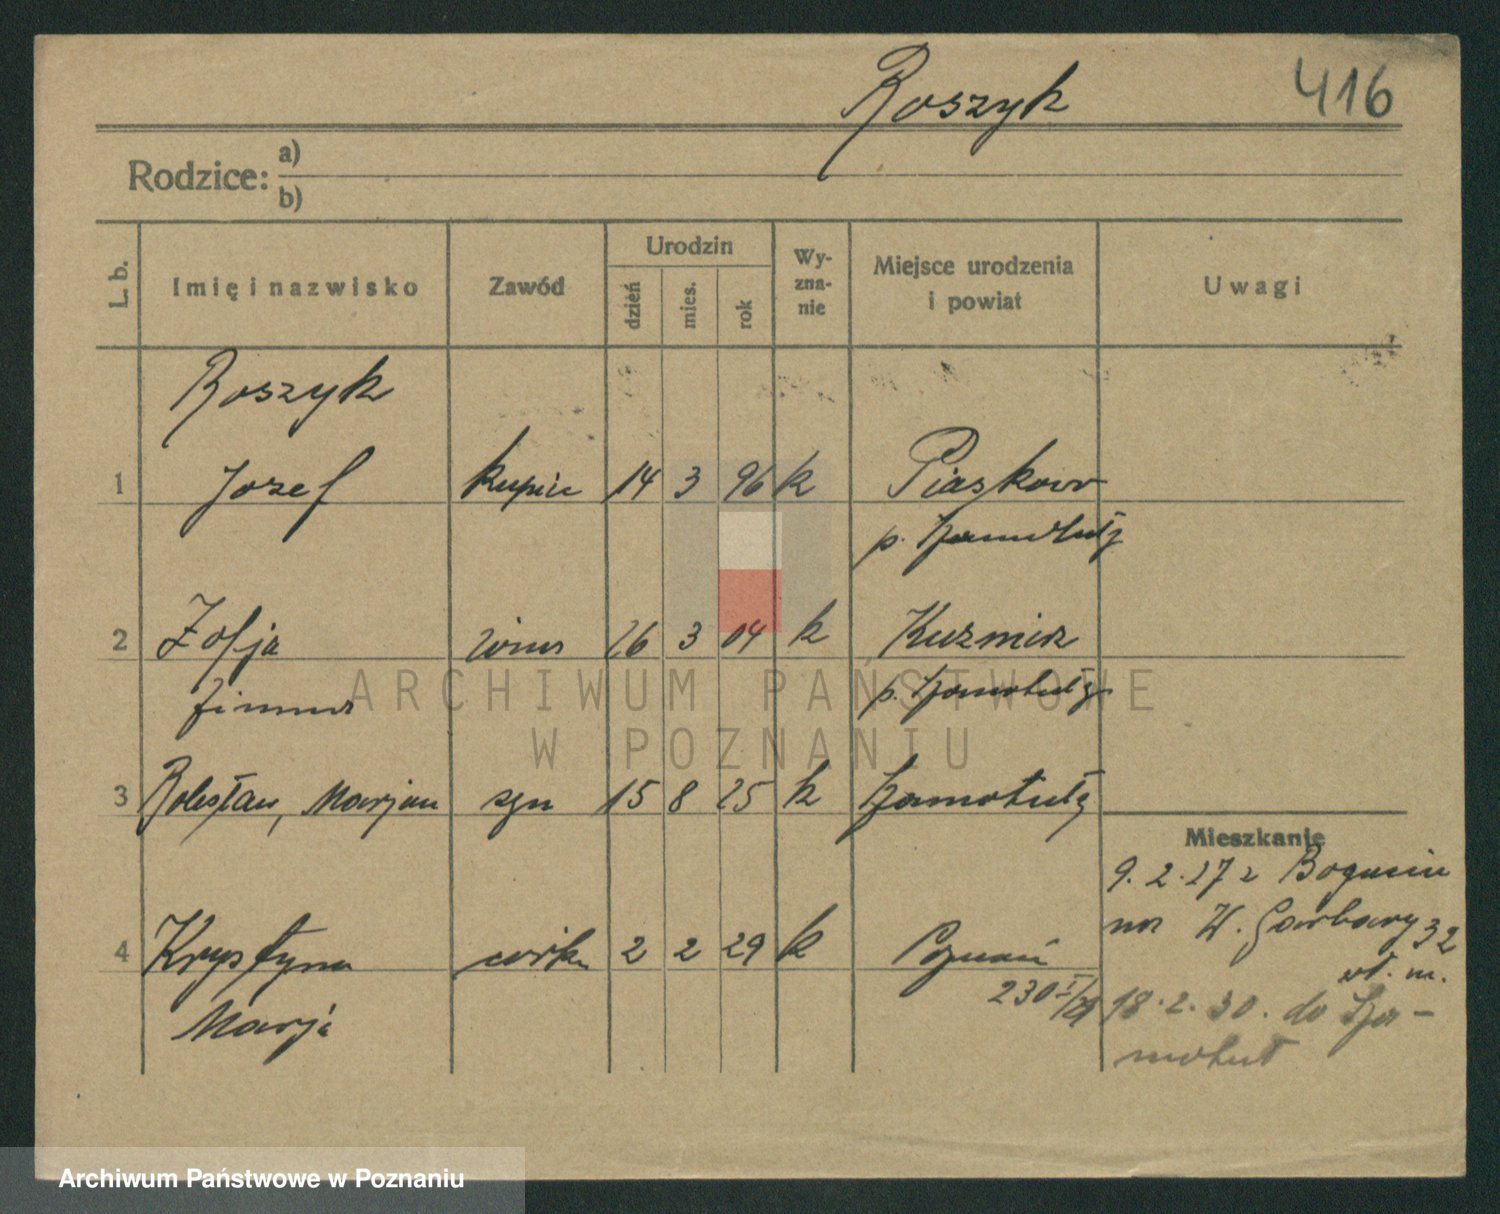 Roszyk 416
Rodzice: a)
b)
L. b. Imię i nazwisko Zawód Urodzin dzień mies. rok Wyznanie Miejsce urodzenia i powiat Uwagi
Roszyk
1 Józef kupiec 14 3 96 k Piaskowo
p. Szamotuły
2 Zofja żona 26 3 04 k Kuźmierz
p. Szamotuły
3 Bolesław, Marjan syn 15 8 25 k Szamotuły
Mieszkanie
9.2.27 z Bogucin
na W. Garbary 32
wł. m.
4 Krystyna córka 2 2 29 k Poznań
230 I/29
Marja
18.2.30. do Sza-
motuł
ARCHIWUM PAŃSTWOWE
W POZNANIU
Archiwum Państwowe w Poznaniu